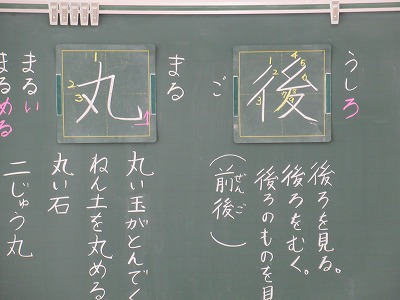 うしろ
後
ご
後ろを見る。
後ろをむく。
後ろのものを見
(前後)
ぜんご
まる
丸
まるい
まるめる
丸い玉がとんでく
ねん土を丸める
丸い石
二じゅう丸